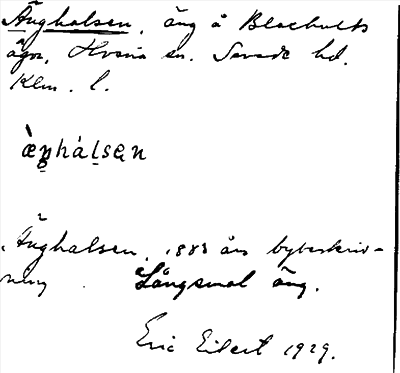 Änghalsen, äng å Blackults
ägor, Hvena sn. Sevede hd.
Klm. l.
æ̀ŋhálsen
Änghalsen, 1883 års bybeskriv-
ning. Långsmal äng.
Eric Eilert 1929.